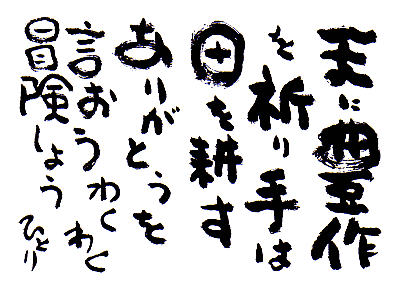 天に豊作
を祈り手は
田を耕す
ありがとうを
言おう わくわく
冒険しよう ひとり